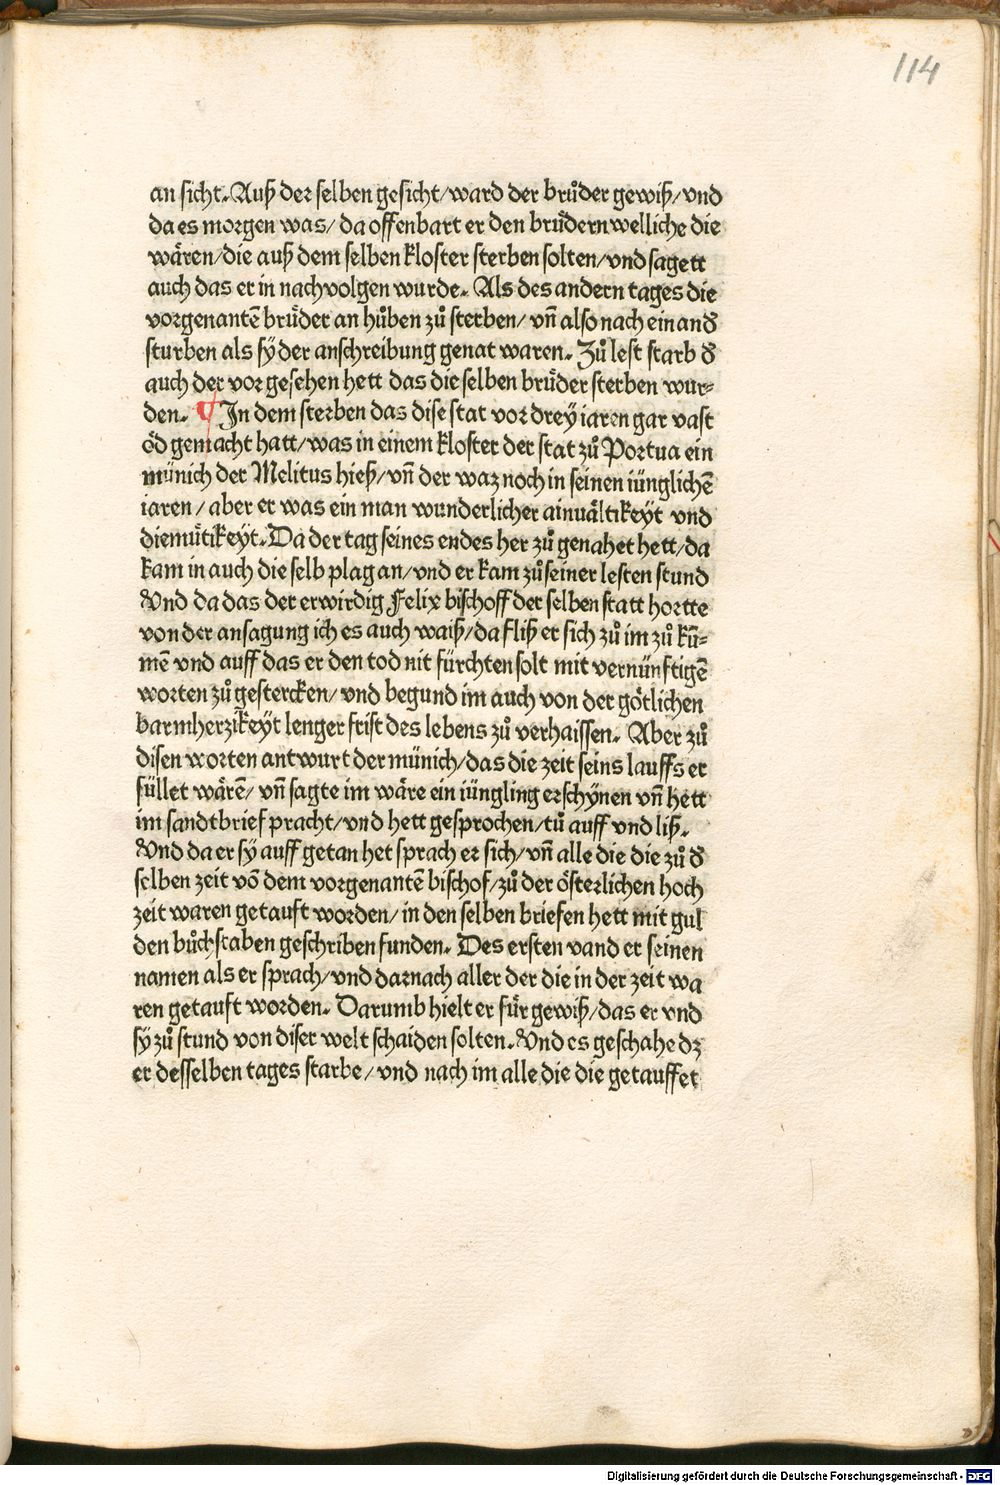 114
an sicht. Auß der selben gesicht/ward der brůder gewiß/vnd
da es morgen was/ da offenbart er den brůdern welliche die
wären/die auß dem selben kloster sterben solten/vnd sagett
auch das er in nachvolgen wurde. Als des andern tages die
vorgenantē brüder an hůben zů sterben/ vñ also nach ein and̕
sturben als sÿ der anschreibung genāt waren. Zů lest starb d̕
auch der vor gesehen hett das die selben brüder sterben wur-
den. ¶ In dem sterben das dise stat vor drey iaren gar vast
öd gemacht hatt/was in einem kloster der stat zů Portua ein
münich der Melitus hieß/vñ der waz noch in seinen iünglichē
iaren/ aber er was ein man wunderlicher ainuältikeyt vnd
diemütikeyt. Da der tag seines endes her zů genahet hett/da
kam in auch die selb plag an/vnd er kam zů seiner lesten stund
Vnd da das der erwirdig Felix bischoff der selben statt hortte
von der ansagung ich es auch waiß/da fliß er sich zů im zů kū-
mē vnd auff das er den tod nit fürchten solt mit vernünftigē
worten zů gestercken/ vnd begund im auch von der götlichen
barmherzikeyt lenger frist des lebens zů verhaissen. Aber zů
disen worten antwurt der münich/das die zeit seins lauffs er
füllet wärē/ vñ sagte im wäre ein iüngling erschÿnen vñ hett
im sandtbrief pracht/vnd hett gesprochen/tů auff vnd liß.
Vnd da er sÿ auff getan het sprach er sich/vñ alle die die zů d̕
selben zeit vō dem vorgenantē bischof/zů der österlichen hoch
zeit waren getauft worden/ in den selben briefen hett mit gul
den bůchstaben geschriben funden. Des ersten vand er seinen
namen als er sprach/vnd darnach aller der die in der zeit wa
ren getauft worden. Darumb hielt er für gewiß/das er vnd
sÿ zů stund von diser welt schaiden solten. Vnd es geschahe dz
er desselben tages starbe/ vnd nach im alle die die getauffet
Digitalisierung gefördert durch die Deutsche Forschungsgemeinschaft - DFG